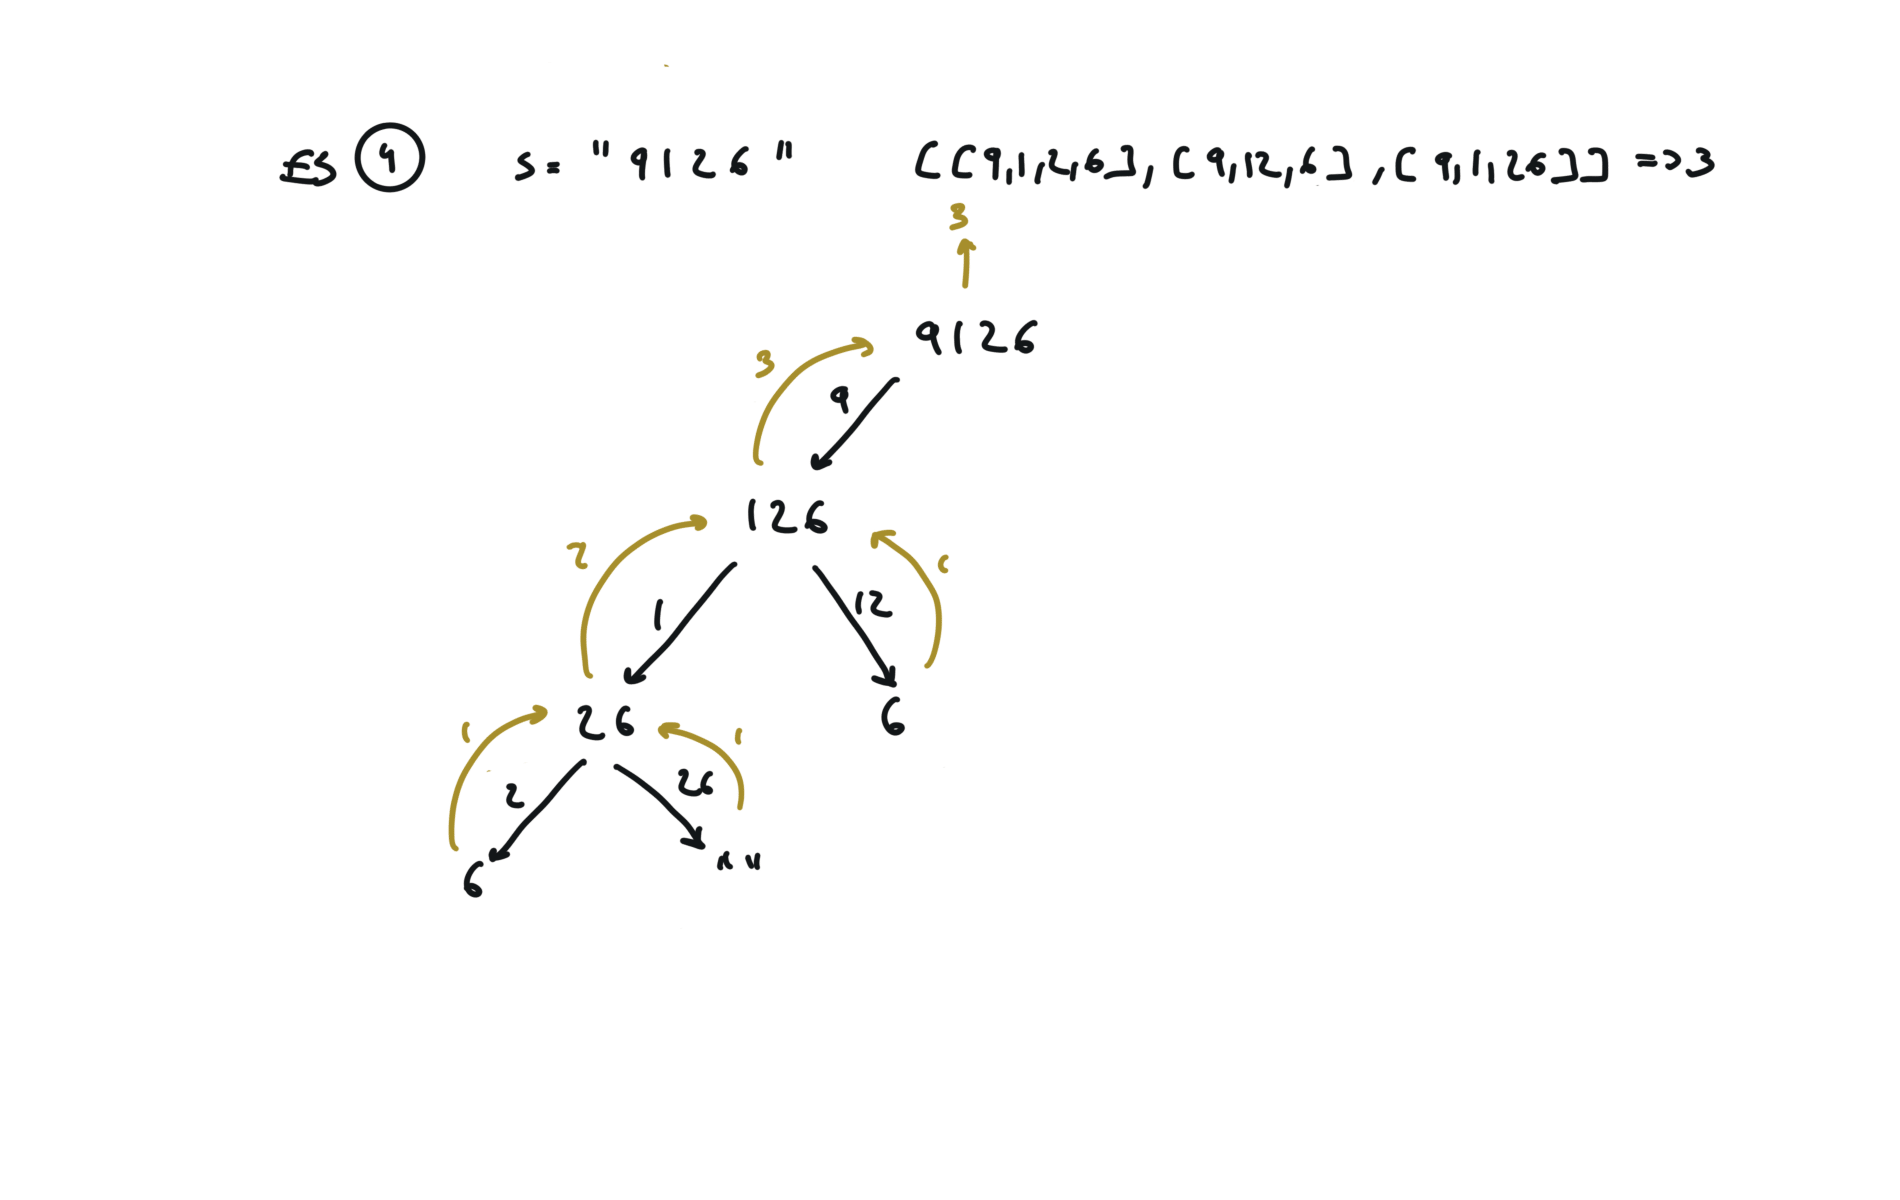 ES 4 s= "9126" [[9,1,2,6],[9,12,6],[9,1,26]] => 3
3
9126
3
9
126
2
1
12
1
26
6
1
2
26
1
6
""